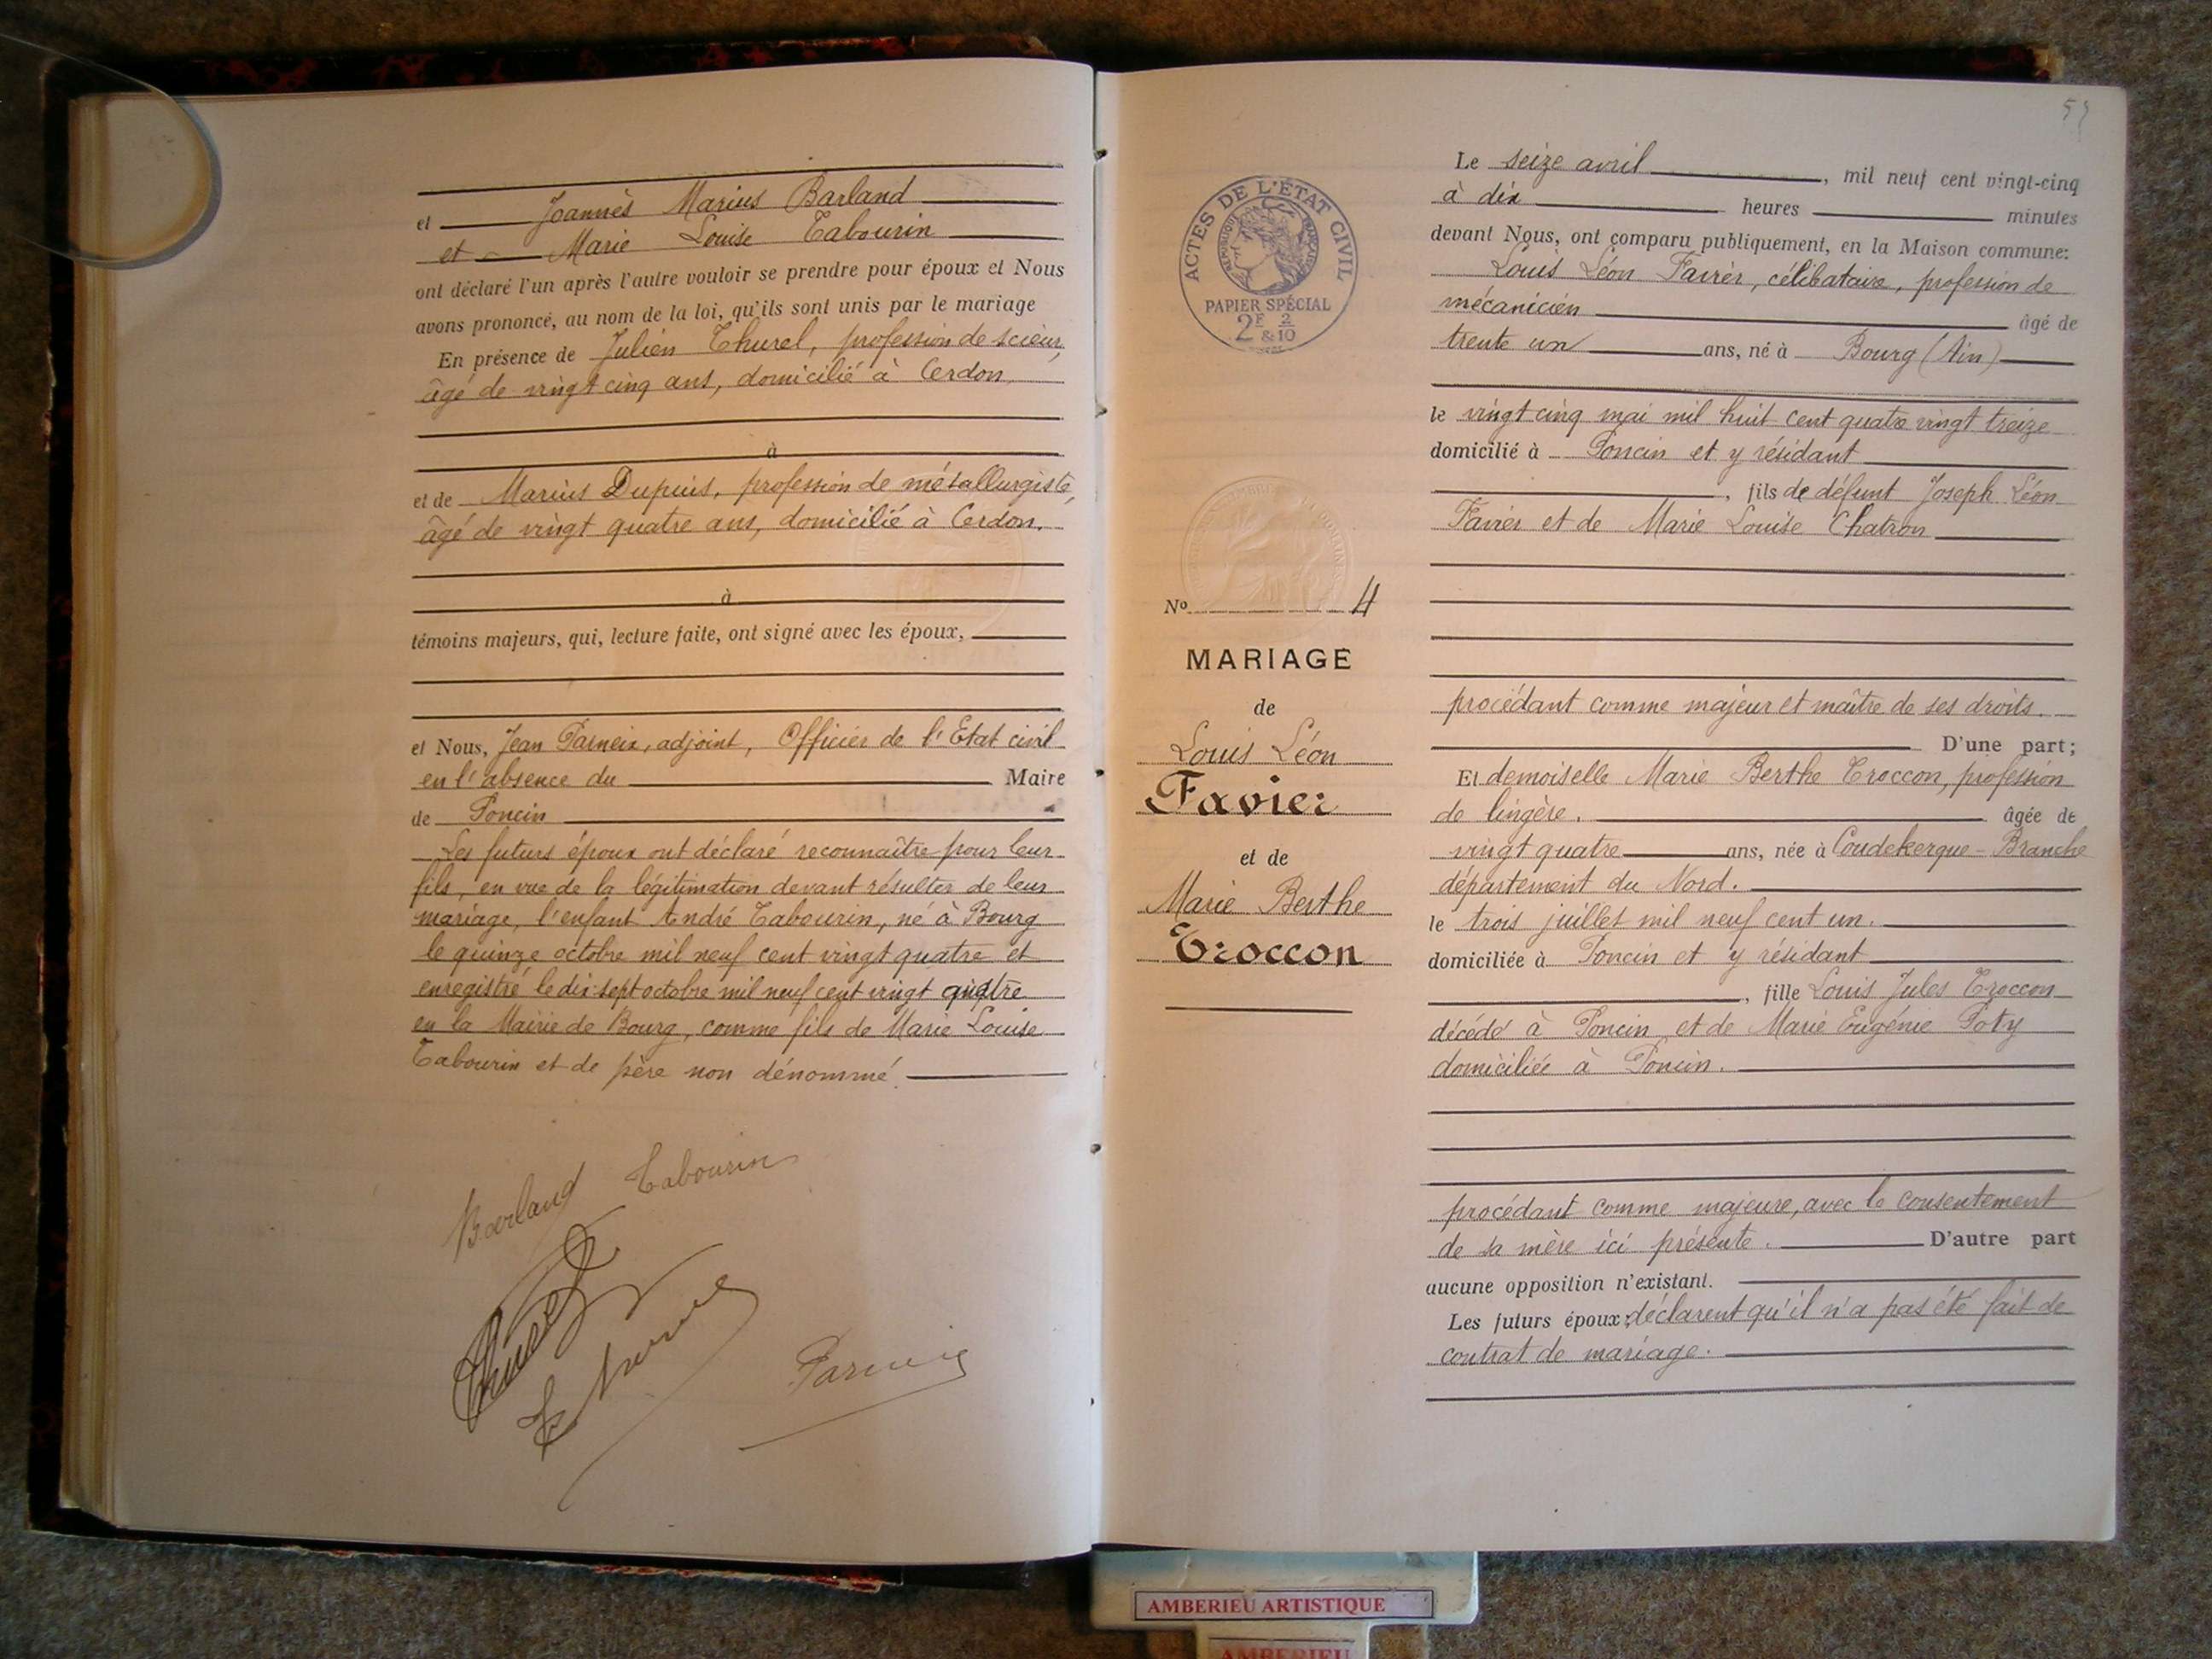 et Joannès Marius Barland
et Marie Louise Tabourin
ont déclaré l'un après l'autre vouloir se prendre pour époux et Nous
avons prononcé, au nom de la loi, qu'ils sont unis par le mariage
En présence de Julien Thurel, profession de scieur,
âgé de vingt cinq ans, domicilié à Cerdon,
à
et de Marius Dupuis, profession de métallurgiste,
âgé de vingt quatre ans, domicilié à Cerdon.
à
témoins majeurs, qui, lecture faite, ont signé avec les époux,
et Nous, Jean Parneix, adjoint, Officier de l'Etat civil
en l'absence du Maire
de Poncin
Les futurs époux ont déclaré reconnaître pour leur
fils, en vue de la légitimation devant résulter de leur
mariage, l'enfant André Tabourin, né à Bourg
le quinze octobre mil neuf cent vingt quatre et
enregistré le dix-sept octobre mil neuf cent vingt quatre
en la Mairie de Bourg, comme fils de Marie Louise
Tabourin et de père non dénommé.
Barland Tabourin
Parneix
ACTES DE L'ÉTAT CIVIL
RÉPUBLIQUE FRANÇAISE
PAPIER SPÉCIAL
2F 2/10
&
No 4
MARIAGE
de
Louis Léon
Favier
et de
Marie Berthe
Troccon
Le seize avril, mil neuf cent vingt-cinq
à dix heures minutes
devant Nous, ont comparu publiquement, en la Maison commune:
Louis Léon Favier, célibataire, profession de
mécanicien âgé de
trente un ans, né à Bourg (Ain)
le vingt cinq mai mil huit cent quatre vingt treize
domicilié à Poncin et y résidant
, fils de défunt Joseph Léon
Favier et de Marie Louise Chatron
procédant comme majeur et maître de ses droits.
D'une part;
Et demoiselle Marie Berthe Troccon, profession
de lingère. âgée de
vingt quatre ans, née à Coudekerque-Branche
département du Nord.
le trois juillet mil neuf cent un.
domiciliée à Poncin et y résidant
, fille Louis Jules Troccon
décédé à Poncin et de Marie Eugénie Poty
domiciliée à Poncin.
procédant comme majeure, avec le consentement
de sa mère ici présente. D'autre part
aucune opposition n'existant.
Les futurs époux déclarent qu'il n'a pas été fait de
contrat de mariage.
AMBERIEU ARTISTIQUE
AMBERIEU